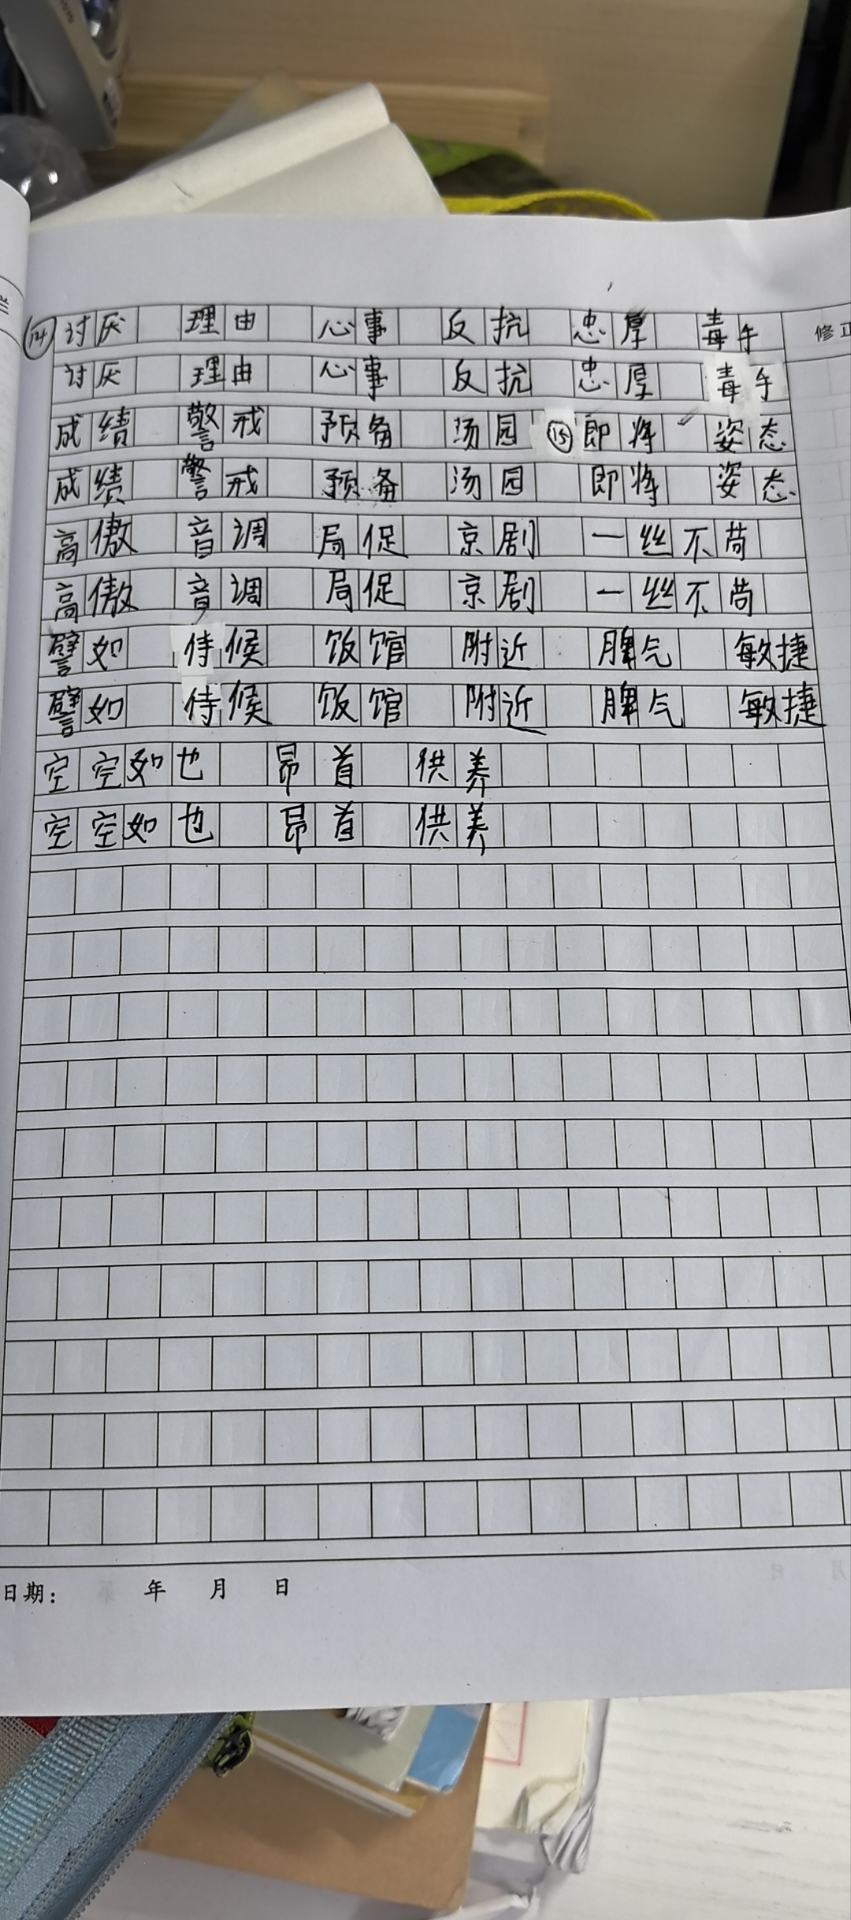 ⑭讨厌 理由 心事 反抗 忠厚 毒手
修正
讨厌 理由 心事 反抗 忠厚 毒手
成绩 警戒 预备 汤园 ⑮即将 姿态
成绩 警戒 预备 汤园 即将 姿态
高傲 音调 局促 京剧 一丝不苟
高傲 音调 局促 京剧 一丝不苟
譬如 侍候 饭馆 附近 脾气 敏捷
譬如 侍候 饭馆 附近 脾气 敏捷
空空如也 昂首 供养
空空如也 昂首 供养
日期： 年 月 日